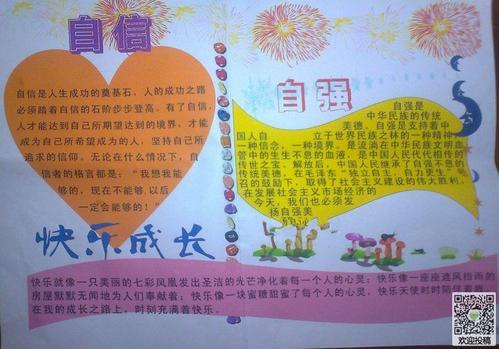 自信
自信是人生成功的奠基石、人的成功之路
必须踏着自信的石阶步步登高。有了自信,
人才能达到自己所期望达到的境界,才能
成为自己所希望成为的人,坚持自己所
追求的信仰。无论在什么情况下,自
信者的格言都是:“我想我能
够的,现在不能够,以后
一定会能够的!”
自强
自强是
中华民族的传统
美德。自强是支持着中
国人自 立于世界民族之林的一种精神
一种信念,一种境界,是流淌在中华民族文明血
管中的生生不息的血液,是中国人民代代相传的
传世之宝。解放后,中国人民继承了自强不息的
传统美德,在毛泽东“独立自主,自力更生”号
召的鼓励下,取得了社会主义建设的伟大胜利。
在发展社会主义市场经济的
今天,我们也必须发
扬自强美
快乐成长
快乐就像一只美丽的七彩凤凰发出圣洁的光芒净化着每一个人的心灵;快乐像一座座遮风挡雨的
房屋默默无闻地为人们奉献着;快乐像一块蜜糖甜蜜了每个人的心灵,快乐天使时时陪伴着我
在我的成长之路上,时刻充满着快乐。
欢迎投稿